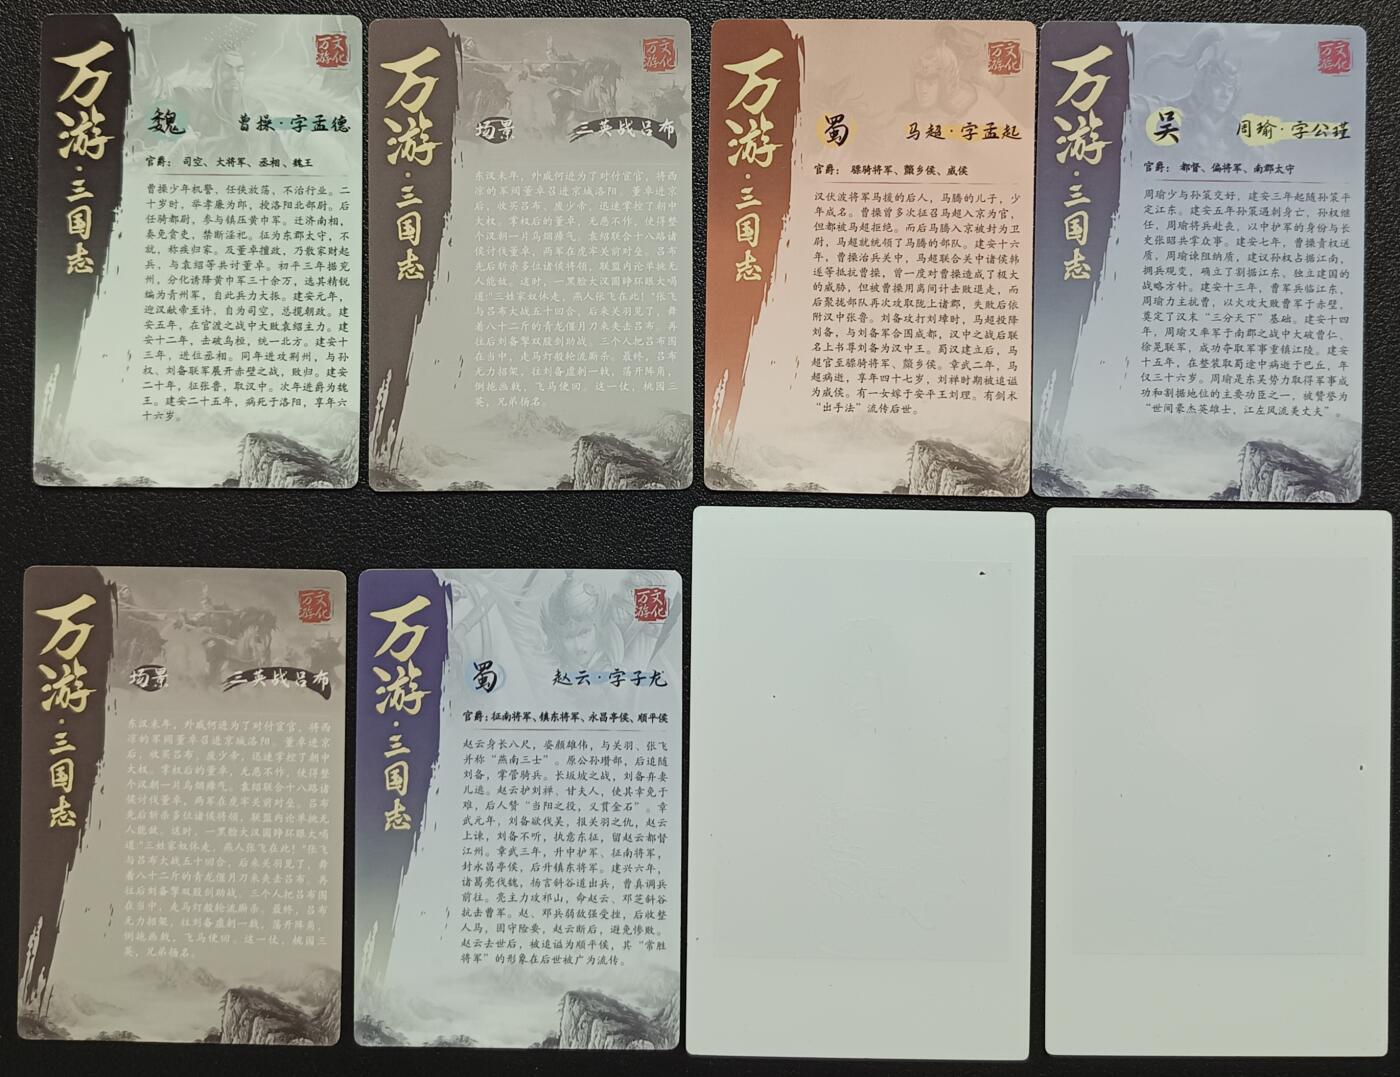 万游·三国志
万游文化
魏 曹操·字孟德
官爵：司空、大将军、丞相、魏王
曹操少年机警，任侠放荡，不治行业。二
十岁时，举孝廉为郎，授洛阳北部尉。后
任骑都尉，参与镇压黄巾军。迁济南相，
奏免贪吏，禁断淫祀。征为东郡太守，不
就，称疾归家。及董卓擅政，乃散家财起
兵，与袁绍等共讨董卓。初平三年据兖
州，分化诱降黄巾军三十余万，选其精锐
编为青州军，自此兵力大振。建安元年，
迎汉献帝至许，自为司空，总揽朝政。建
安五年，在官渡之战中大败袁绍主力。建
安十二年，击破乌桓，统一北方。建安十
三年，进位丞相。同年进攻荆州，与孙
权、刘备联军展开赤壁之战，败归。建安
二十年，征张鲁，取汉中。次年进爵为魏
王。建安二十五年，病死于洛阳，享年六
十六岁。
万游·三国志
万游文化
场景 三英战吕布
东汉末年，外戚何进为了对付宦官，将西
凉的军阀董卓召进京城洛阳。董卓进京
后，收买吕布，废少帝，迅速掌控了朝中
大权。掌权后的董卓，无恶不作，使得整
个汉朝一片乌烟瘴气。袁绍联合十八路诸
侯讨伐董卓，两军在虎牢关前对垒。吕布
先后斩杀多位诸侯将领，联盟内论单挑无
人能敌。这时，一黑脸大汉圆睁环眼大喝
道:"三姓家奴休走，燕人张飞在此！"张飞
与吕布大战五十回合，后来关羽见了，舞
着八十二斤的青龙偃月刀来夹击吕布。再
往后刘备掣双股剑助战。三个人把吕布围
在当中，走马灯般轮流厮杀。最终，吕布
无力招架，往刘备虚刺一戟，荡开阵角，
倒拖画戟，飞马便回。这一仗，桃园三
英，兄弟扬名。
万游·三国志
万游文化
蜀 马超·字孟起
官爵：骠骑将军、斄乡侯、威侯
汉伏波将军马援的后人，马腾的儿子，少
年成名。曹操曾多次征召马超入京为官，
但都被马超拒绝。而后马腾入京被封为卫
尉，马超就统领了马腾的部队。建安十六
年，曹操治兵关中，马超联合关中诸侯韩
遂等抵抗曹操，曾一度对曹操造成了极大
的威胁，但被曹操用离间计击败退走，而
后聚拢部队再次攻取陇上诸郡，失败后依
附汉中张鲁。刘备攻打刘璋时，马超投降
刘备，与刘备军合围成都，汉中之战后联
名上书尊刘备为汉中王。蜀汉建立后，马
超官至骠骑将军、斄乡侯。章武二年，马
超病逝，享年四十七岁，刘禅时期被追谥
为威侯。有一女嫁于安平王刘理。有剑术
“出手法”流传后世。
万游·三国志
万游文化
吴 周瑜·字公瑾
官爵：都督、偏将军、南郡太守
周瑜少与孙策交好，建安三年起随孙策平
定江东。建安五年孙策遇刺身亡，孙权继
任，周瑜将兵赴丧，以中护军的身份与长
史张昭共掌众事。建安七年，曹操责权送
质，周瑜谏阻纳质，建议孙权占据江南，
拥兵观变，确立了割据江东、独立建国的
战略方针。建安十三年，曹军兵临江东，
周瑜力主抗曹，以火攻大败曹军于赤壁，
奠定了汉末“三分天下”基础。建安十四
年，周瑜又率军于南郡之战中大破曹仁、
徐晃联军，成功夺取军事重镇江陵。建安
十五年，在整装取蜀途中病逝于巴丘，年
仅三十六岁。周瑜是东吴势力取得军事成
功和割据地位的主要功臣之一，被赞誉为
“世间豪杰英雄士，江左风流美丈夫”。
万游·三国志
万游文化
场景 三英战吕布
东汉末年，外戚何进为了对付宦官，将西
凉的军阀董卓召进京城洛阳。董卓进京
后，收买吕布，废少帝，迅速掌控了朝中
大权。掌权后的董卓，无恶不作，使得整
个汉朝一片乌烟瘴气。袁绍联合十八路诸
侯讨伐董卓，两军在虎牢关前对垒。吕布
先后斩杀多位诸侯将领，联盟内论单挑无
人能敌。这时，一黑脸大汉圆睁环眼大喝
道:"三姓家奴休走，燕人张飞在此！"张飞
与吕布大战五十回合，后来关羽见了，舞
着八十二斤的青龙偃月刀来夹击吕布。再
往后刘备掣双股剑助战。三个人把吕布围
在当中，走马灯般轮流厮杀。最终，吕布
无力招架，往刘备虚刺一戟，荡开阵角，
倒拖画戟，飞马便回。这一仗，桃园三
英，兄弟扬名。
万游·三国志
万游文化
蜀 赵云·字子龙
官爵：征南将军、镇东将军、永昌亭侯、顺平侯
赵云身长八尺，姿颜雄伟，与关羽、张飞
并称“燕南三士”。原公孙瓒部，后追随
刘备，掌管骑兵。长坂坡之战，刘备弃妻
儿逃。赵云护刘禅、甘夫人，使其幸免于
难，后人赞“当阳之役，义贯金石”。章
武元年，刘备欲伐吴，报关羽之仇，赵云
上谏，刘备不听，执意东征，留赵云都督
江州。章武三年，升中护军、征南将军，
封永昌亭侯，后升镇东将军。建兴六年，
诸葛亮伐魏，扬言斜谷道出兵，曹真调兵
前往。亮主力攻祁山，命赵云、邓芝斜谷
抗击曹军。赵、邓兵弱敌强受挫，后收整
人马，固守险要，赵云断后，避免惨败。
赵云去世后，被追谥为顺平侯，其“常胜
将军”的形象在后世被广为流传。